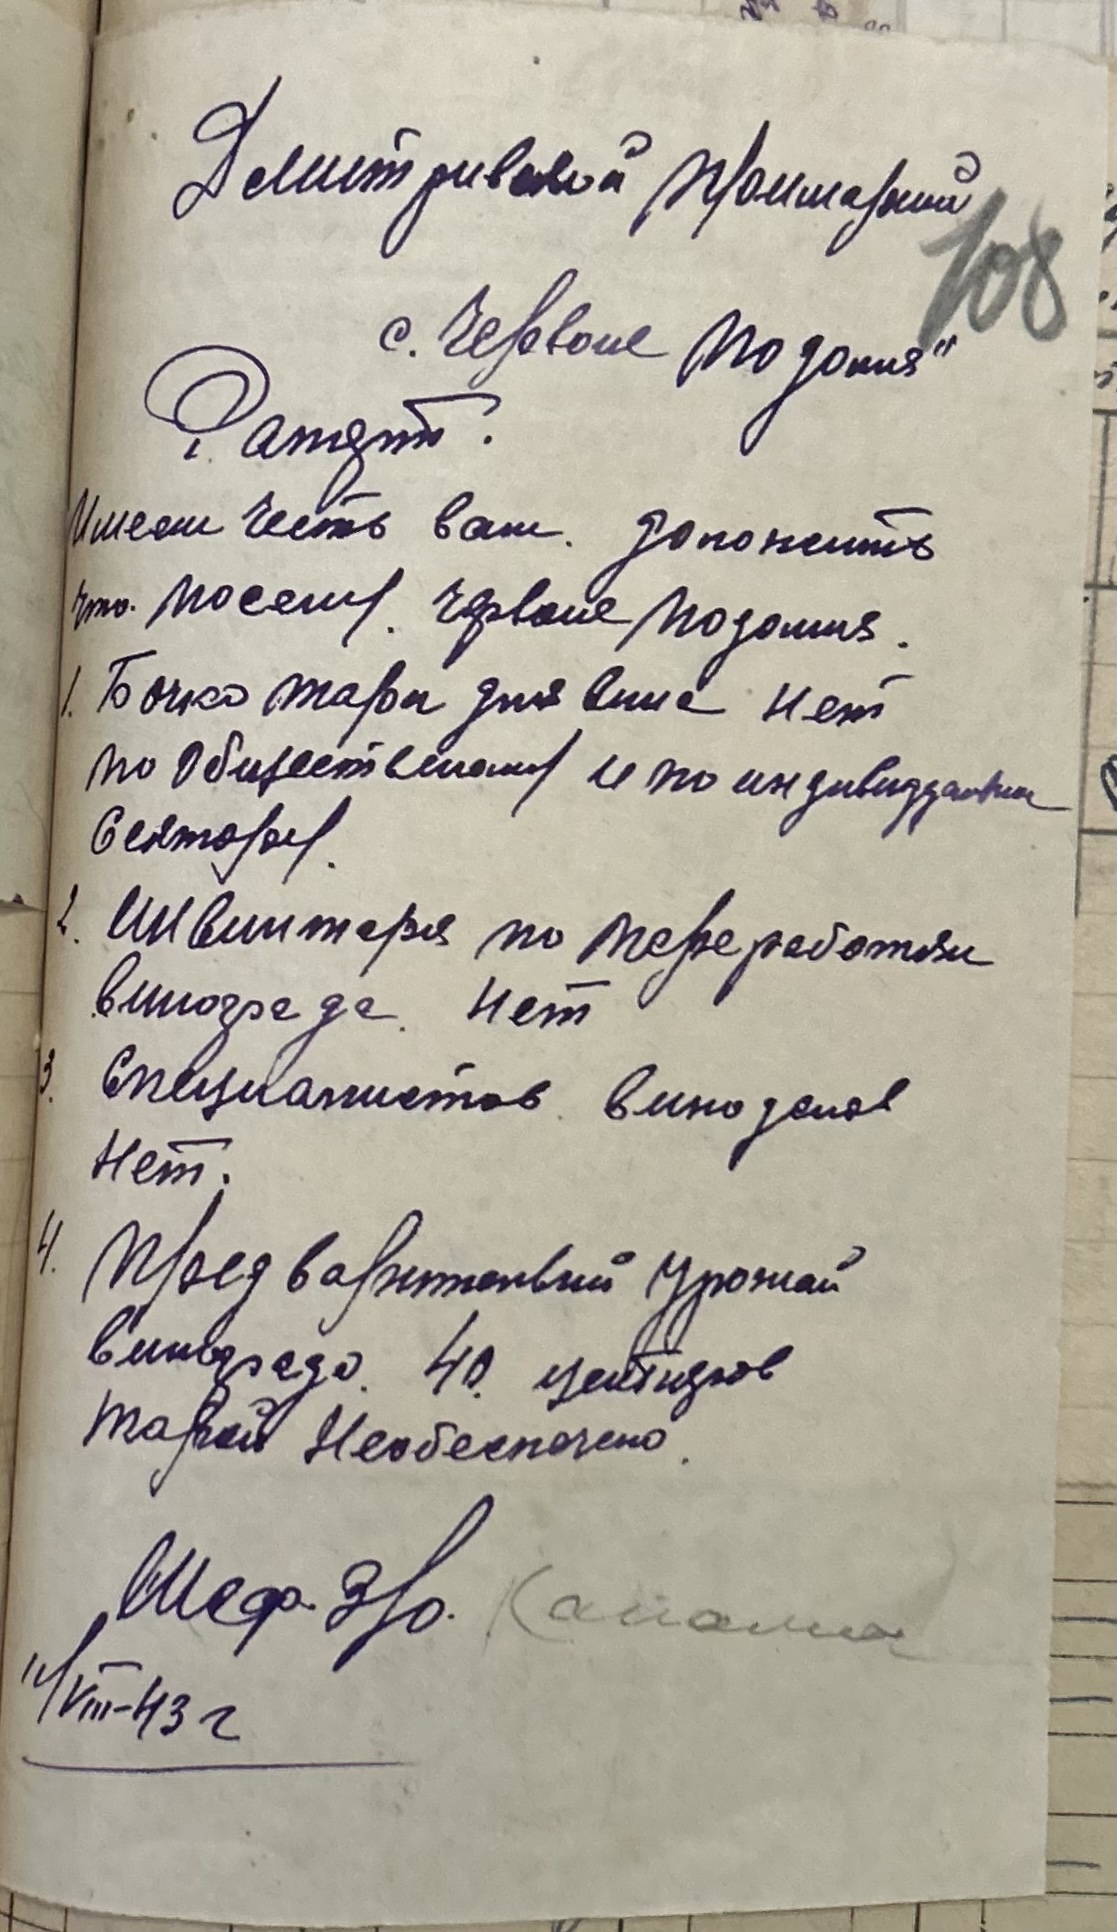 Дмитривской Примарий
108
с. Червоне Подолия"
Рапорт.
Имеем честь вам. доложить
что. посели. Червоне Подолия.
1. Бочко тары для вина Нет
по Общественому и по индивидуальному
Сектору.
2. Инвинтаря по переработки
винограда. Нет
3. Специалистов. виноделов
Нет.
4. Предварительный урожай
винограда. 40. центнеров
тарой Необеспечено.
Шеф.
VIII-43 г